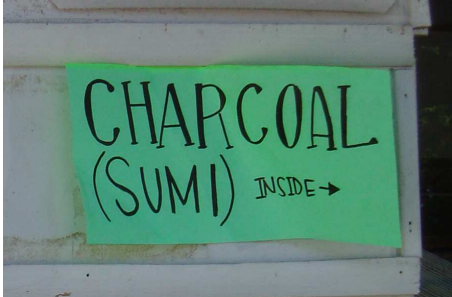 CHARCOAL
(SUMI) INSIDE→